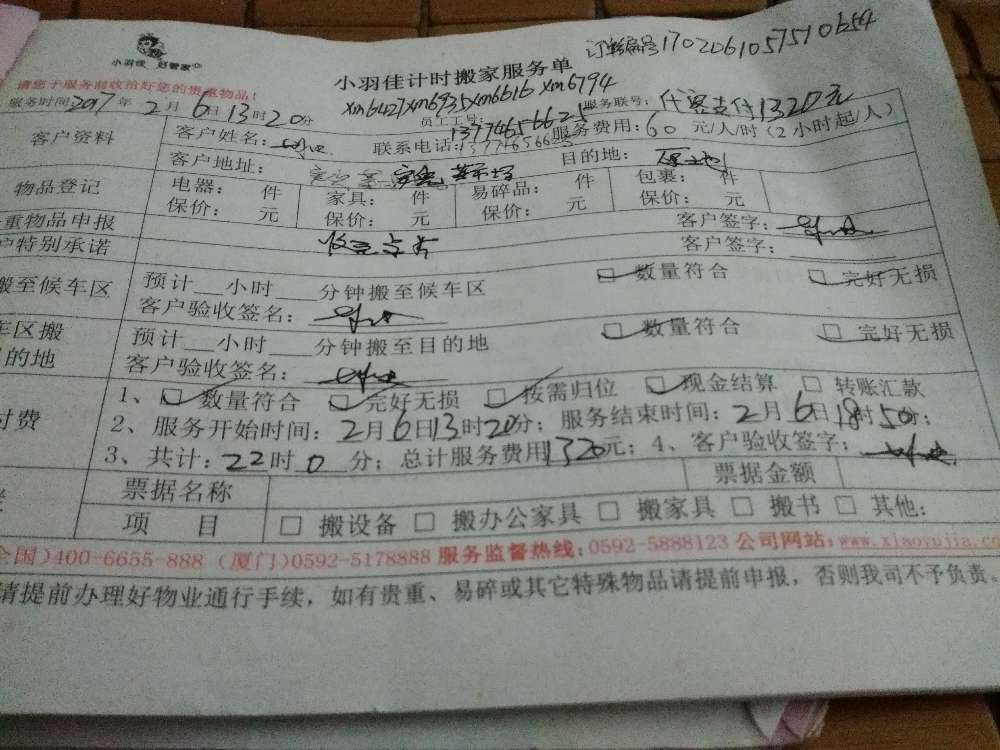 订单编号1702061057510654
小羽佳 好管家
小羽佳计时搬家服务单
请您于服务前收拾好您的贵重物品!
xm6427xm6935xm6616 xm6794
服务时间2017年2月6日13时20分 员工工号: 服务联号: 代客支付1320元
客户资料 客户姓名: 联系电话:13774656625 服务费用:60元/人/时(2小时起/人)
13774656625
客户地址: 目的地:
物品登记 电器: 件 家具: 件 易碎品: 件 包裹: 件
保价: 元 保价: 元 保价: 元 保价: 元
重物品申报 客户签字:
户特别承诺 客户签字:
搬至候车区 预计 小时 分钟搬至候车区 □数量符合 □完好无损
客户验收签名:
车区搬 预计 小时 分钟搬至目的地 □数量符合 □完好无损
目的地 客户验收签名:
付费 1、□数量符合 □完好无损 □按需归位 □现金结算 □转账汇款
2、服务开始时间:2月6日13时20分; 服务结束时间:2月6日18时50分;
3、共计:22时0分; 总计服务费用1320元; 4、客户验收签字:
票据名称 票据金额
项 目 □搬设备 □搬办公家具 □搬家具 □搬书 □其他:
全国)400-6655-888 (厦门)0592-5178888 服务监督热线:0592-5888123 公司网站:www.xiaoyujia.co
请提前办理好物业通行手续,如有贵重、易碎或其它特殊物品请提前申报,否则我司不予负责。